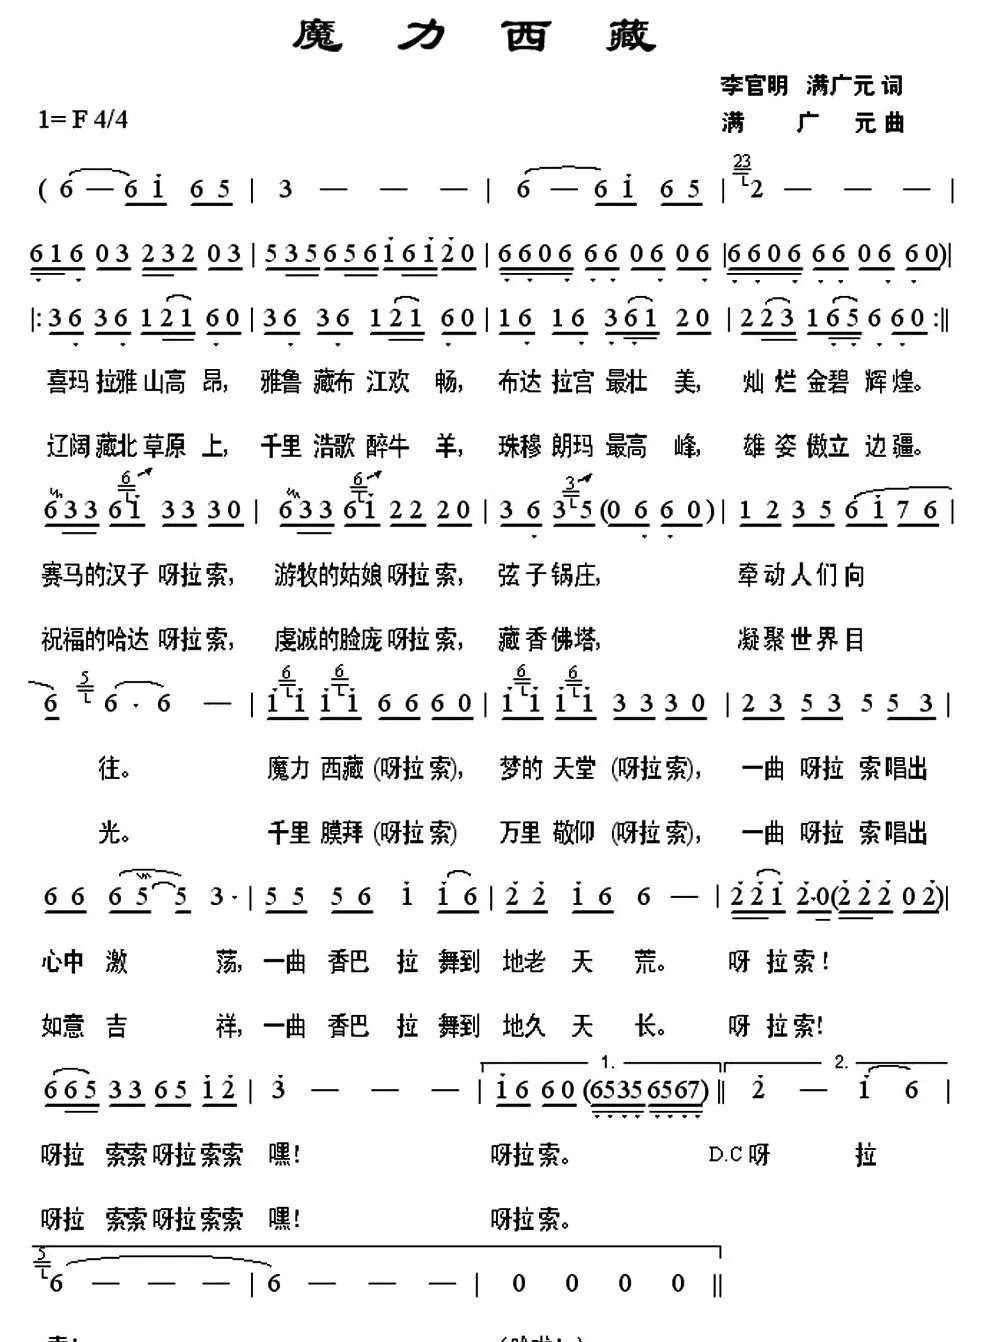 魔力西藏
李官明 满广元 词
1= F 4/4
满广元 曲
( 6 — 6 1 6 5 | 3 — — — | 6 — 6 1 6 5 | 23 2 — — — |
6 1 6 0 3 2 3 2 0 3 | 5 3 5 6 5 6 1 6 1 2 0 | 6 6 0 6 6 6 0 6 0 6 | 6 6 0 6 6 6 0 6 6 0 ) |
|: 3 6 3 6 1 2 1 6 0 | 3 6 3 6 1 2 1 6 0 | 1 6 1 6 3 6 1 2 0 | 2 2 3 1 6 5 6 6 0 :||
喜玛 拉雅 山高 昂, 雅鲁 藏布 江欢 畅, 布达 拉宫 最壮 美, 灿 烂 金碧 辉 煌。
辽阔 藏北 草原 上, 千里 浩歌 醉牛 羊, 珠穆 朗玛 最高 峰, 雄 姿 傲立 边 疆。
6 3 3 6 6 1 3 3 3 0 | 6 3 3 6 6 1 2 2 2 0 | 3 6 3 3 5 ( 0 6 6 0 ) | 1 2 3 5 6 1 7 6 |
赛马的汉子 呀拉 索, 游牧的姑娘 呀拉 索, 弦子 锅庄, 牵动 人们 向
祝福的哈达 呀拉 索, 虔诚的脸庞 呀拉 索, 藏香 佛塔, 凝聚 世界 目
6 5 6 · 6 — | 1 6 1 1 6 1 6 6 6 0 | 1 6 1 1 6 1 3 3 3 0 | 2 3 5 3 5 5 3 |
往。 魔力 西藏 (呀拉 索), 梦的 天堂 (呀拉 索), 一曲 呀拉 索唱出
光。 千里 膜拜 (呀拉 索) 万里 敬仰 (呀拉 索), 一曲 呀拉 索唱出
6 6 6 5 5 3 · | 5 5 5 6 1 1 6 | 2 2 1 6 6 — | 2 2 1 2 · 0 ( 2 2 2 0 2 ) |
心中 激 荡, 一曲 香巴 拉 舞到 地老 天 荒。 呀 拉 索!
如意 吉 祥, 一曲 香巴 拉 舞到 地久 天 长。 呀 拉 索!
1. 2.
6 6 5 3 3 6 5 1 2 | 3 — — — | 1 6 6 0 ( 6535 6567 ) || 2 — 1 6 |
呀拉 索索 呀拉 索索 嘿! 呀拉 索。 D.C 呀 拉
呀拉 索索 呀拉 索索 嘿! 呀拉 索。
5 6 — — — | 6 — — — | 0 0 0 0 ||